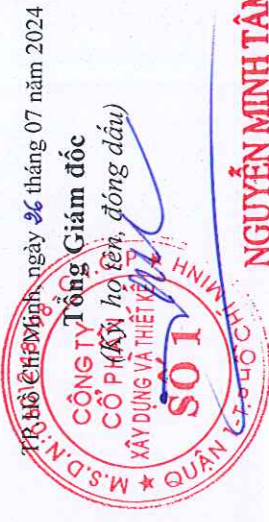 TP. Hồ Chí Minh, ngày 26 tháng 07 năm 2024
Tổng Giám đốc
(Ký, họ tên, đóng dấu)
M.S.D.N:
CÔNG TY
CỔ PHẦN
XÂY DỰNG VÀ THIẾT KẾ
SỐ 1
QUẬN
T.P HỒ CHÍ MINH
NGUYỄN MINH TÂN